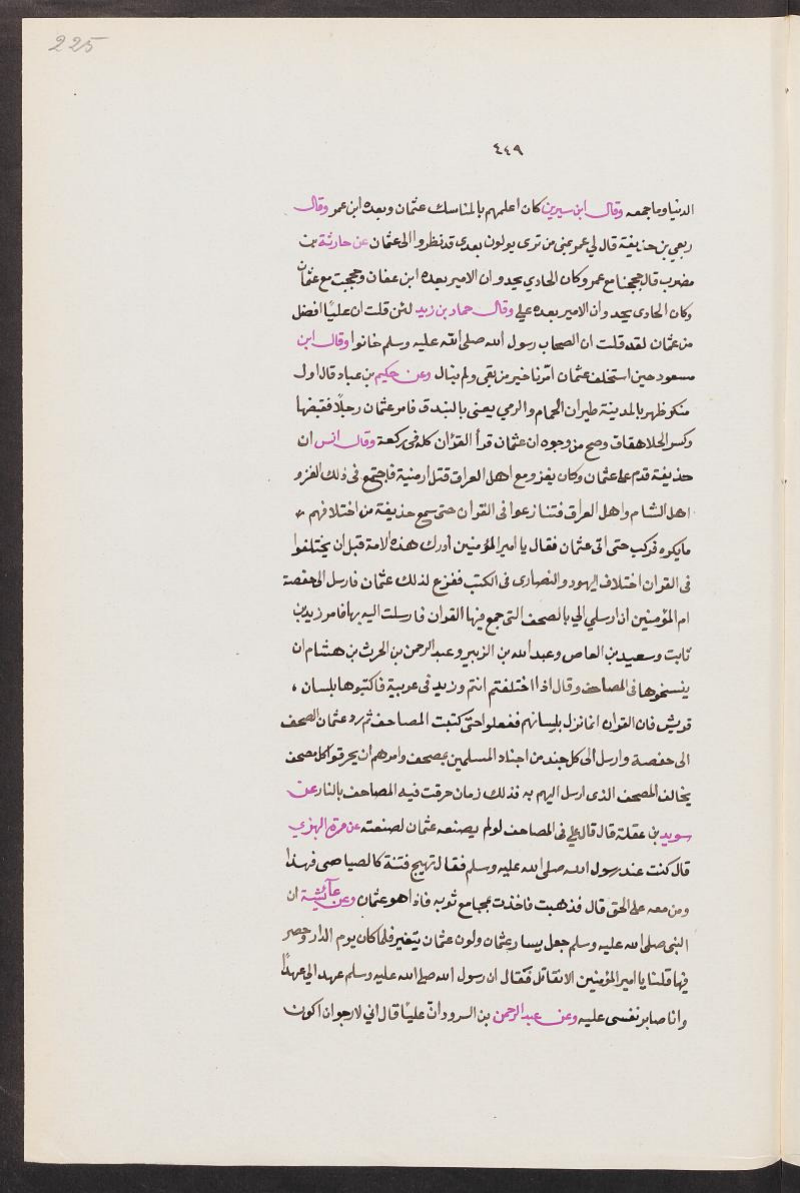 225
٤٤٩
الدنيا وما جمعه وقال ابن سيرين كان اعلمهم بالمناسك عثمان وبعده ابن عمر وقال
ربعي بن حذيفة قال لي عمر بمنى من ترى يولون بعدي قد نظروا الى عثمان عن حارثة بن
مضرب قال حججنا مع عمر وكان الحادي يحدو ان الامير بعده ابن عفان وحججت مع عثمان
وكان الحادى يحدو ان الامير بعده علي وقال حماد بن زيد لئن قلت ان عليًا افضل
من عثمان لقد قلت ان اصحاب رسول الله صلى الله عليه وسلم خانوا وقال ابن
مسعود حين استخلف عثمان امرنا خير من بقى ولم ينال وعن حكيم بن عباد قال اول
منكر ظهر بالمدينة طيران الحمام والرمي يعنى بالبندق فامر عثمان رجلًا فقبضها
وكسر الجلاهقات وصح من وجوه ان عثمان قرأ القرٔان كله فى ركعة وقال انس ان
حذيفة قدم على عثمان وكان يغزو مع اهل العراق قبل ارمنية فاجتمع فى ذلك الغزو
اهل الشام واهل العراق فتنازعوا فى القران حتى سمع حذيفة من اختلافهم
مايكره فركب حتى اتى عثمان فقال يا امير المؤمنين أدرك هذه الامة قبل ان يختلفوا
فى القران اختلاف اليهود والنصارى فى الكتب ففزع لذلك عثمان فارسل الى حفصة
ام المؤمنين ان ارسلي الي بالصحف التى جمع فيها القران فارسلت اليه بها فامر زيد بن
ثابت وسعيد بن العاص وعبد الله بن الزبير وعبد الرحمن بن الحرث بن هشام ان
ينسخوها فى المصاحف وقال اذا اختلفتم انتم وزيد فى عربية فاكتبوها بلسان ،
قريش فان القران انما نزل بلسانهم ففعلوا حتى كتبت المصاحف ثم رد عثمان الصحف
الى حفصة وارسل الى كل جند من اجناد المسلمين بمصحف وامرهم ان يحرقوا كل مصحف
يخالف المصحف الذى ارسل اليهم به فذلك زمان حرقت فيه المصاحف بالنار عن
سويد بن عقلة قال قال علي فى المصاحف لو لم يصنعه عثمان لصنعته عن مرة البهزي
قال كنت عند رسول الله صلى الله عليه وسلم فقال تهيج فتنة كالصياصى فهذا
ومن معه على الحق قال فذهبت فاخذت بمجامع ثوبه فاذا هو عثمان وعن عآئشة ان
النبى صلى الله عليه وسلم جعل يسار عثمان ولون عثمان يتغير فلما كان يوم الدار وحصر
فيها قلنا يا امير المؤمنين الا نقاتل فقال ان رسول الله صلى الله عليه وسلم عهد الي عهدًا
وانا صابر نفسى عليه وعن عبد الرحمن بن السرود انّ عليًا قال اني لارجو ان اكون